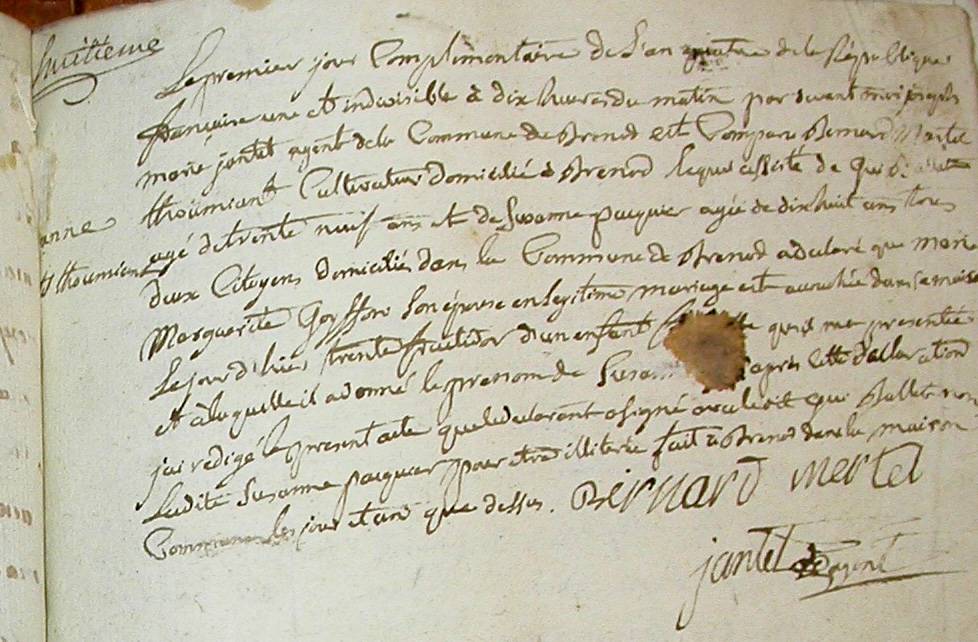 huitieme
Le premier jour Complimentaire de L'an de la Republique
francaise une et indivisible à dix heures du matin par devant moi joseph
marie jantet agent de la Commune de Brenod est Comparu Bernard Martel
anne
thoumient Cultivateur domicilié à Brenod lequel assisté de Gui Ballet
t thoumient
agé de trente neuf ans et de Susanne pacquier agée de dix huit ans tous
deux Citoyens domiciliés dans la Commune de Brenod a declaré que marie
Marguerite Goyffon son épouse en legitime mariage est acouchée dans sa maison
Le jour d'hier trente fructidor d'un enfant femelle qu'il me presentée
et à laquelle il a donné le prenom de Susanne d'apres cette declaration
j'ai redigé le present acte que le declarant a signé avec ledit Gui Ballet non
Ladite Susanne pacquier pour etre illiterée fait à Brenod dans la maison
Commune les jour et an que dessus. Bernard mertel
jantet agent